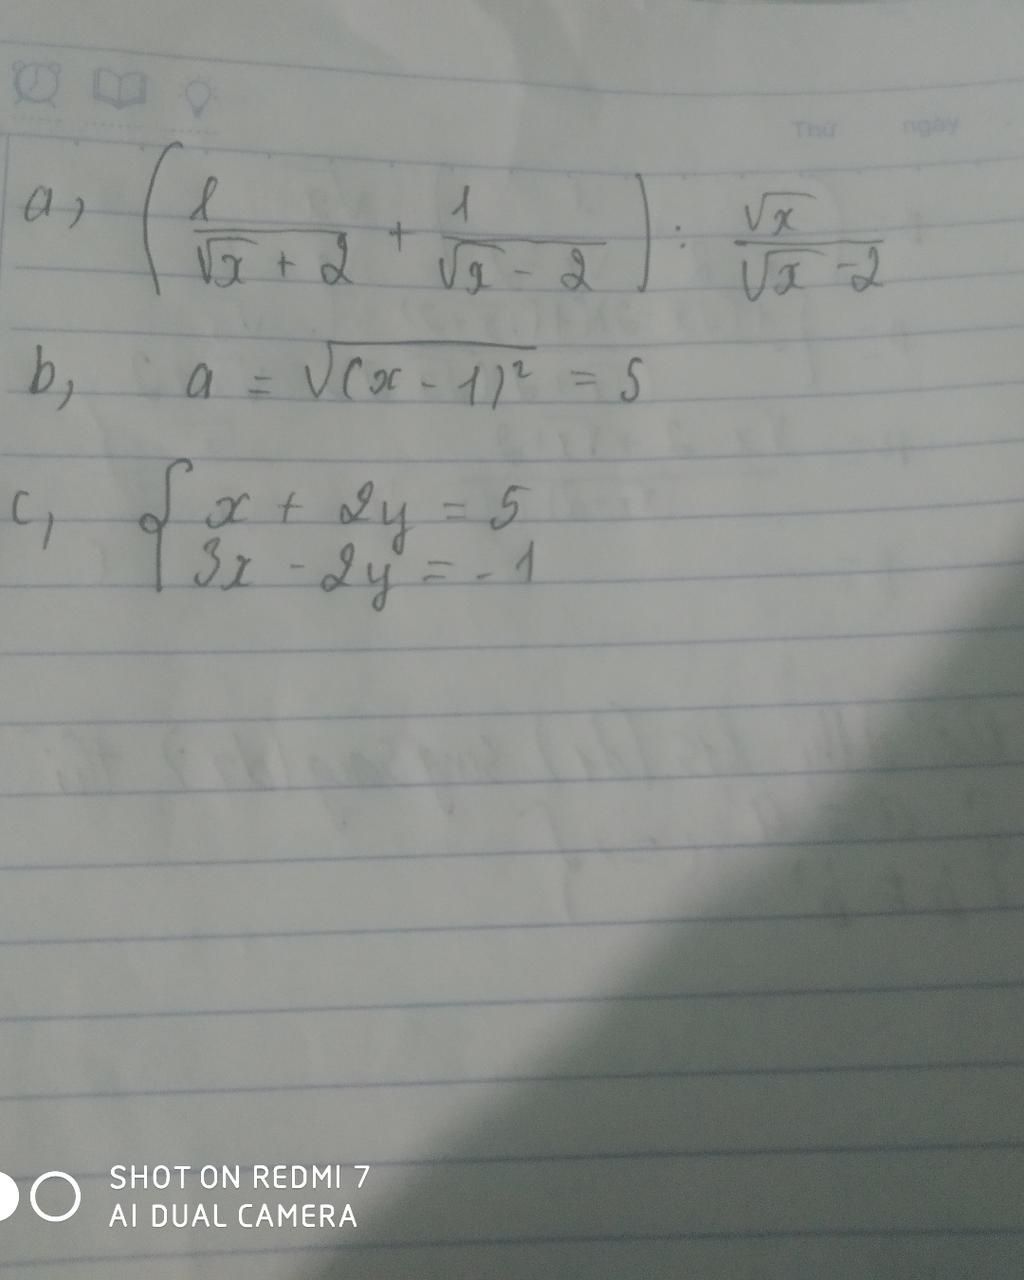 Thứ ngày
a, ( 1/(√x + 2) + 1/(√x - 2) ) : √x/(√x - 2)
b, a = √(x - 1)² = 5
c, { x + 2y = 5
3x - 2y = -1
SHOT ON REDMI 7
AI DUAL CAMERA